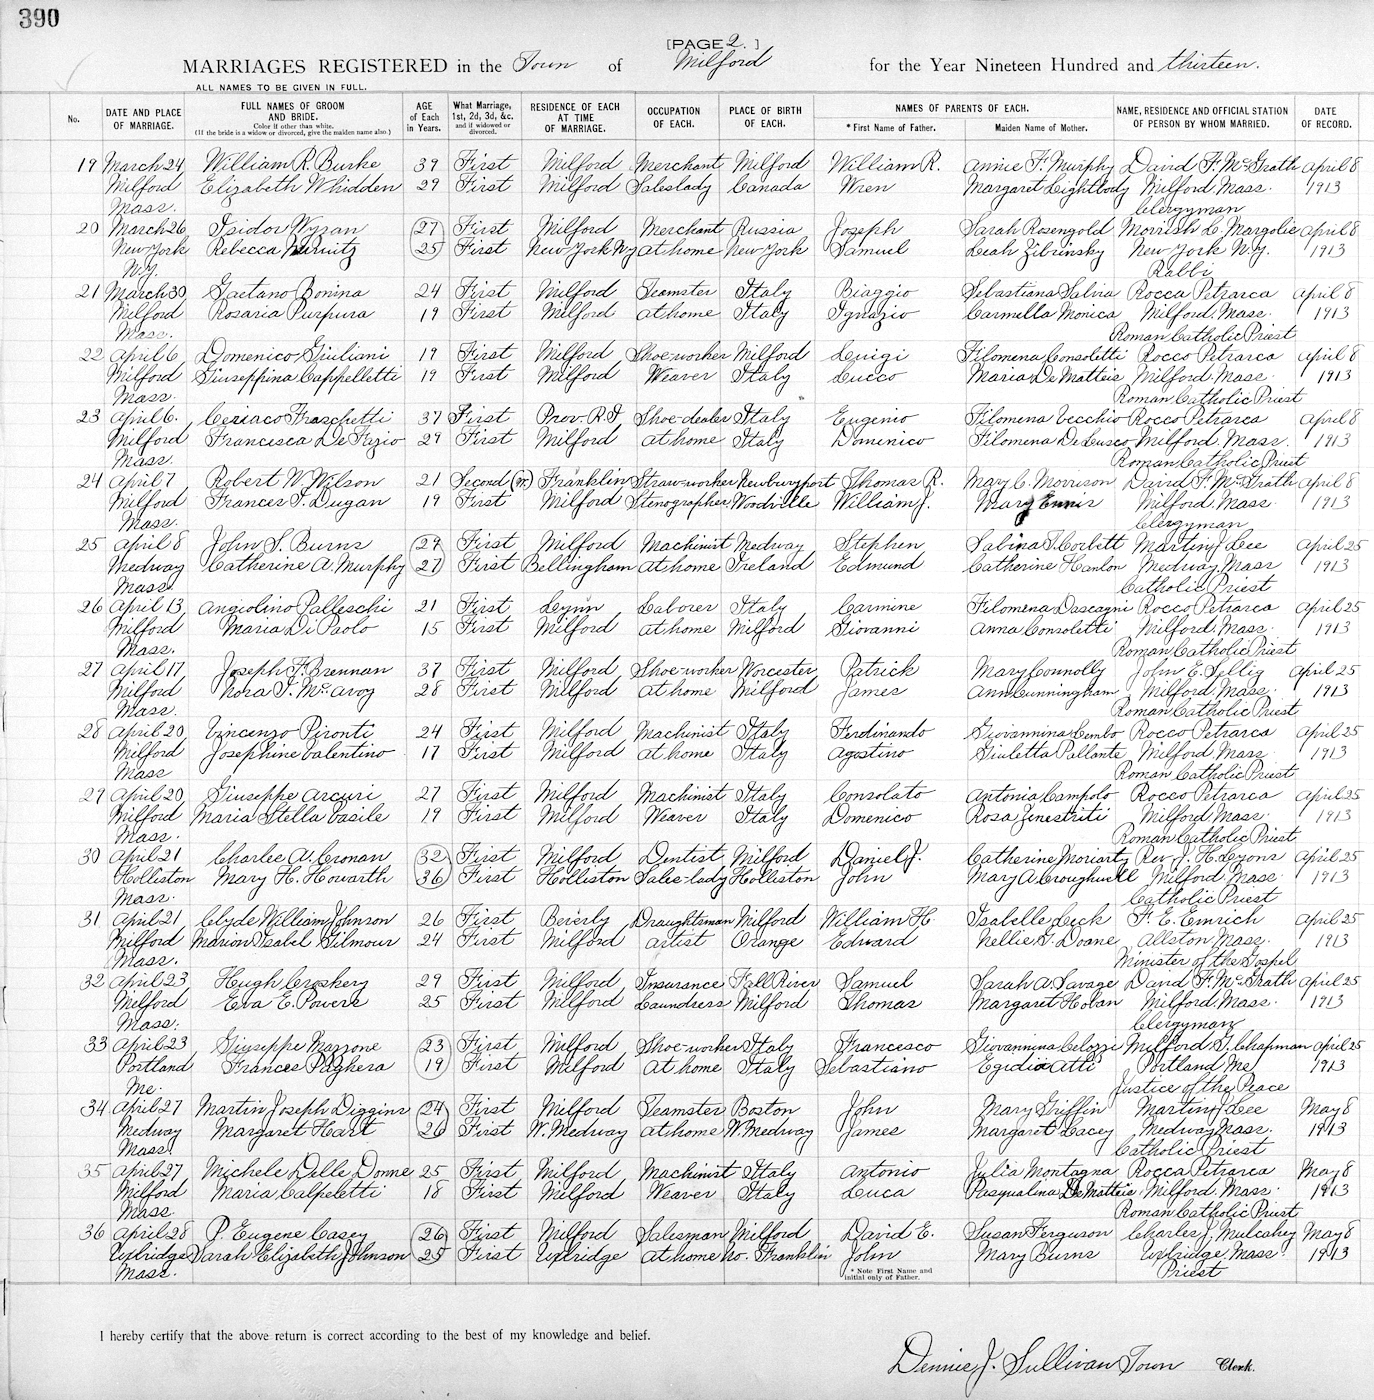 390
[PAGE 2.]
MARRIAGES REGISTERED in the Town of Milford for the Year Nineteen Hundred and thirteen.
ALL NAMES TO BE GIVEN IN FULL.
No. DATE AND PLACE OF MARRIAGE. FULL NAMES OF GROOM AND BRIDE. Color if other than white. (If the bride is a widow or divorced, give the maiden name also.) AGE of Each in Years. What Marriage, 1st, 2d, 3d, &c. and if widowed or divorced. RESIDENCE OF EACH AT TIME OF MARRIAGE. OCCUPATION OF EACH. PLACE OF BIRTH OF EACH. NAMES OF PARENTS OF EACH. * First Name of Father. Maiden Name of Mother. NAME, RESIDENCE AND OFFICIAL STATION OF PERSON BY WHOM MARRIED. DATE OF RECORD.
19 March 24 William R. Burke 39 First Milford Merchant Milford William R. Annie F. Murphy David F. McGrath April 8
Milford Elizabeth Whidden 29 First Milford Saleslady Canada Wren Margaret Lightbody Milford Mass. 1913
Mass. Clergyman
20 March 26 Isidor Wyzan 27 First Milford Merchant Russia Joseph Sarah Rosengold Morrish L. Margolie April 8
New York Rebecca 25 First New York NY at home New York Samuel Leah Zibrinsky New York N.Y. 1913
N.Y. Rabbi
21 March 30 Gaetano Bonina 24 First Milford Teamster Italy Biaggio Sebastiana Salvia Rocca Petrarca April 8
Milford Rosaria Purpura 19 First Milford at home Italy Ignazio Carmella Monica Milford Mass. 1913
Mass. Roman Catholic Priest
22 April 6 Domenico Giuliani 19 First Milford Shoe-worker Milford Luigi Filomena Consoletti Rocco Petrarca April 8
Milford Giuseppina Cappelletti 19 First Milford Weaver Italy Lucco Maria De Matteis Milford Mass. 1913
Mass. Roman Catholic Priest
23 April 6. Ceriaco Fraschetti 37 First Prov. R.I Shoe-dealer Italy Eugenio Filomena Vecchio Rocco Petrarca April 8
Milford Francisca De Figio 29 First Milford at home Italy Domenico Filomena De Lusco Milford Mass. 1913
Mass. Roman Catholic Priest
24 April 7 Robert W. Wilson 21 Second (w.) Franklin Straw-worker Newburyport Thomas R. Mary C. Morrison David F. McGrath April 8
Milford Frances I. Dugan 19 First Milford Stenographer Woodville William J. Mary Ennis Milford Mass. 1913
Mass. Clergyman
25 April 8 John S. Burns 29 First Milford Machinist Medway Stephen Sabina T. Corbett Martin J Lee April 25
Medway Catherine A. Murphy 27 First Bellingham at home Ireland Edmund Catherine Hanlon Medway Mass 1913
Mass. Catholic Priest
26 April 13 Angiolino Palleschi 21 First Lynn Laborer Italy Carmine Filomena Dascagni Rocco Petrarca April 25
Milford Maria Di Paolo 15 First Milford at home Milford Giovanni Anna Consoletti Milford Mass. 1913
Mass. Roman Catholic Priest
27 April 17 Joseph F. Brennan 37 First Milford Shoe-worker Worcester Patrick Mary Connolly John E. Sellig April 25
Milford Nora T. McAvoy 28 First Milford at home Milford James Ann Cunningham Milford Mass. 1913
Mass. Roman Catholic Priest
28 April 20 Vincenzo Pironti 24 First Milford Machinist Italy Ferdinando Giovannina Cembo Rocco Petrarca April 25
Milford Josephine Valentino 17 First Milford at home Italy Agostino Giuletta Pallante Milford Mass. 1913
Mass Roman Catholic Priest
29 April 20 Giuseppe Arcuri 27 First Milford Machinist Italy Consolato Antonia Campolo Rocco Petrarca April 25
Milford Maria Stella Vasile 19 First Milford Weaver Italy Domenico Rosa Zinestriti Milford Mass. 1913
Mass. Roman Catholic Priest
30 April 21 Charles A. Cronan 32 First Milford Dentist Milford Daniel J. Catherine Moriarty Rev. J. H. Lyons April 25
Holliston Mary H. Howarth 36 First Holliston Sales-lady Holliston John Mary A. Croughwell Milford Mass. 1913
Mass. Catholic Priest
31 April 21 Clyde William Johnson 26 First Beverly Draughtsman Milford William H. Isabelle Leck F. E. Emrich April 25
Milford Marion Isabel Gilmour 24 First Milford Artist Orange Edward Nellie G. Doane Allston Mass. 1913
Mass. Minister of the Gospel
32 April 23 Hugh Croskery 29 First Milford Insurance Fall River Samuel Sarah A. Savage David F. McGrath April 25
Milford Eva E. Powers 25 First Milford Laundress Milford Thomas Margaret Hoban Milford Mass. 1913
Mass. Clergyman
33 April 23 Giuseppe Mazzone 23 First Milford Shoe-worker Italy Francesco Giovannina Celozzi Milford G. Chapman April 25
Portland Frances Paghera 19 First Milford At home Italy Sebastiano Egidia Atti Portland Me. 1913
Me. Justice of the Peace
34 April 27 Martin Joseph Diggins 24 First Milford Teamster Boston John Mary Griffin Martin J Lee May 8
Medway Margaret Hart 26 First W. Medway at home W. Medway James Margaret Lacey Medway Mass. 1913
Mass. Catholic Priest
35 April 27 Michele Delle Donne 25 First Milford Machinist Italy Antonio Julia Montagna Rocca Petrarca May 8
Milford Maria Calpeletti 18 First Milford Weaver Italy Luca Pasqualina De Matteis Milford Mass. 1913
Mass. Roman Catholic Priest
36 April 28 P. Eugene Casey 26 First Milford Salesman Milford David E. Susan Ferguson Charles J. Mulcahey May 8
Uxbridge Sarah Elizabeth Johnson 25 First Uxbridge At home No. Franklin John Mary Burns Uxbridge Mass. 1913
Mass. Priest
* Note First Name and initial only of Father.
I hereby certify that the above return is correct according to the best of my knowledge and belief.
Dennis J. Sullivan Town Clerk.